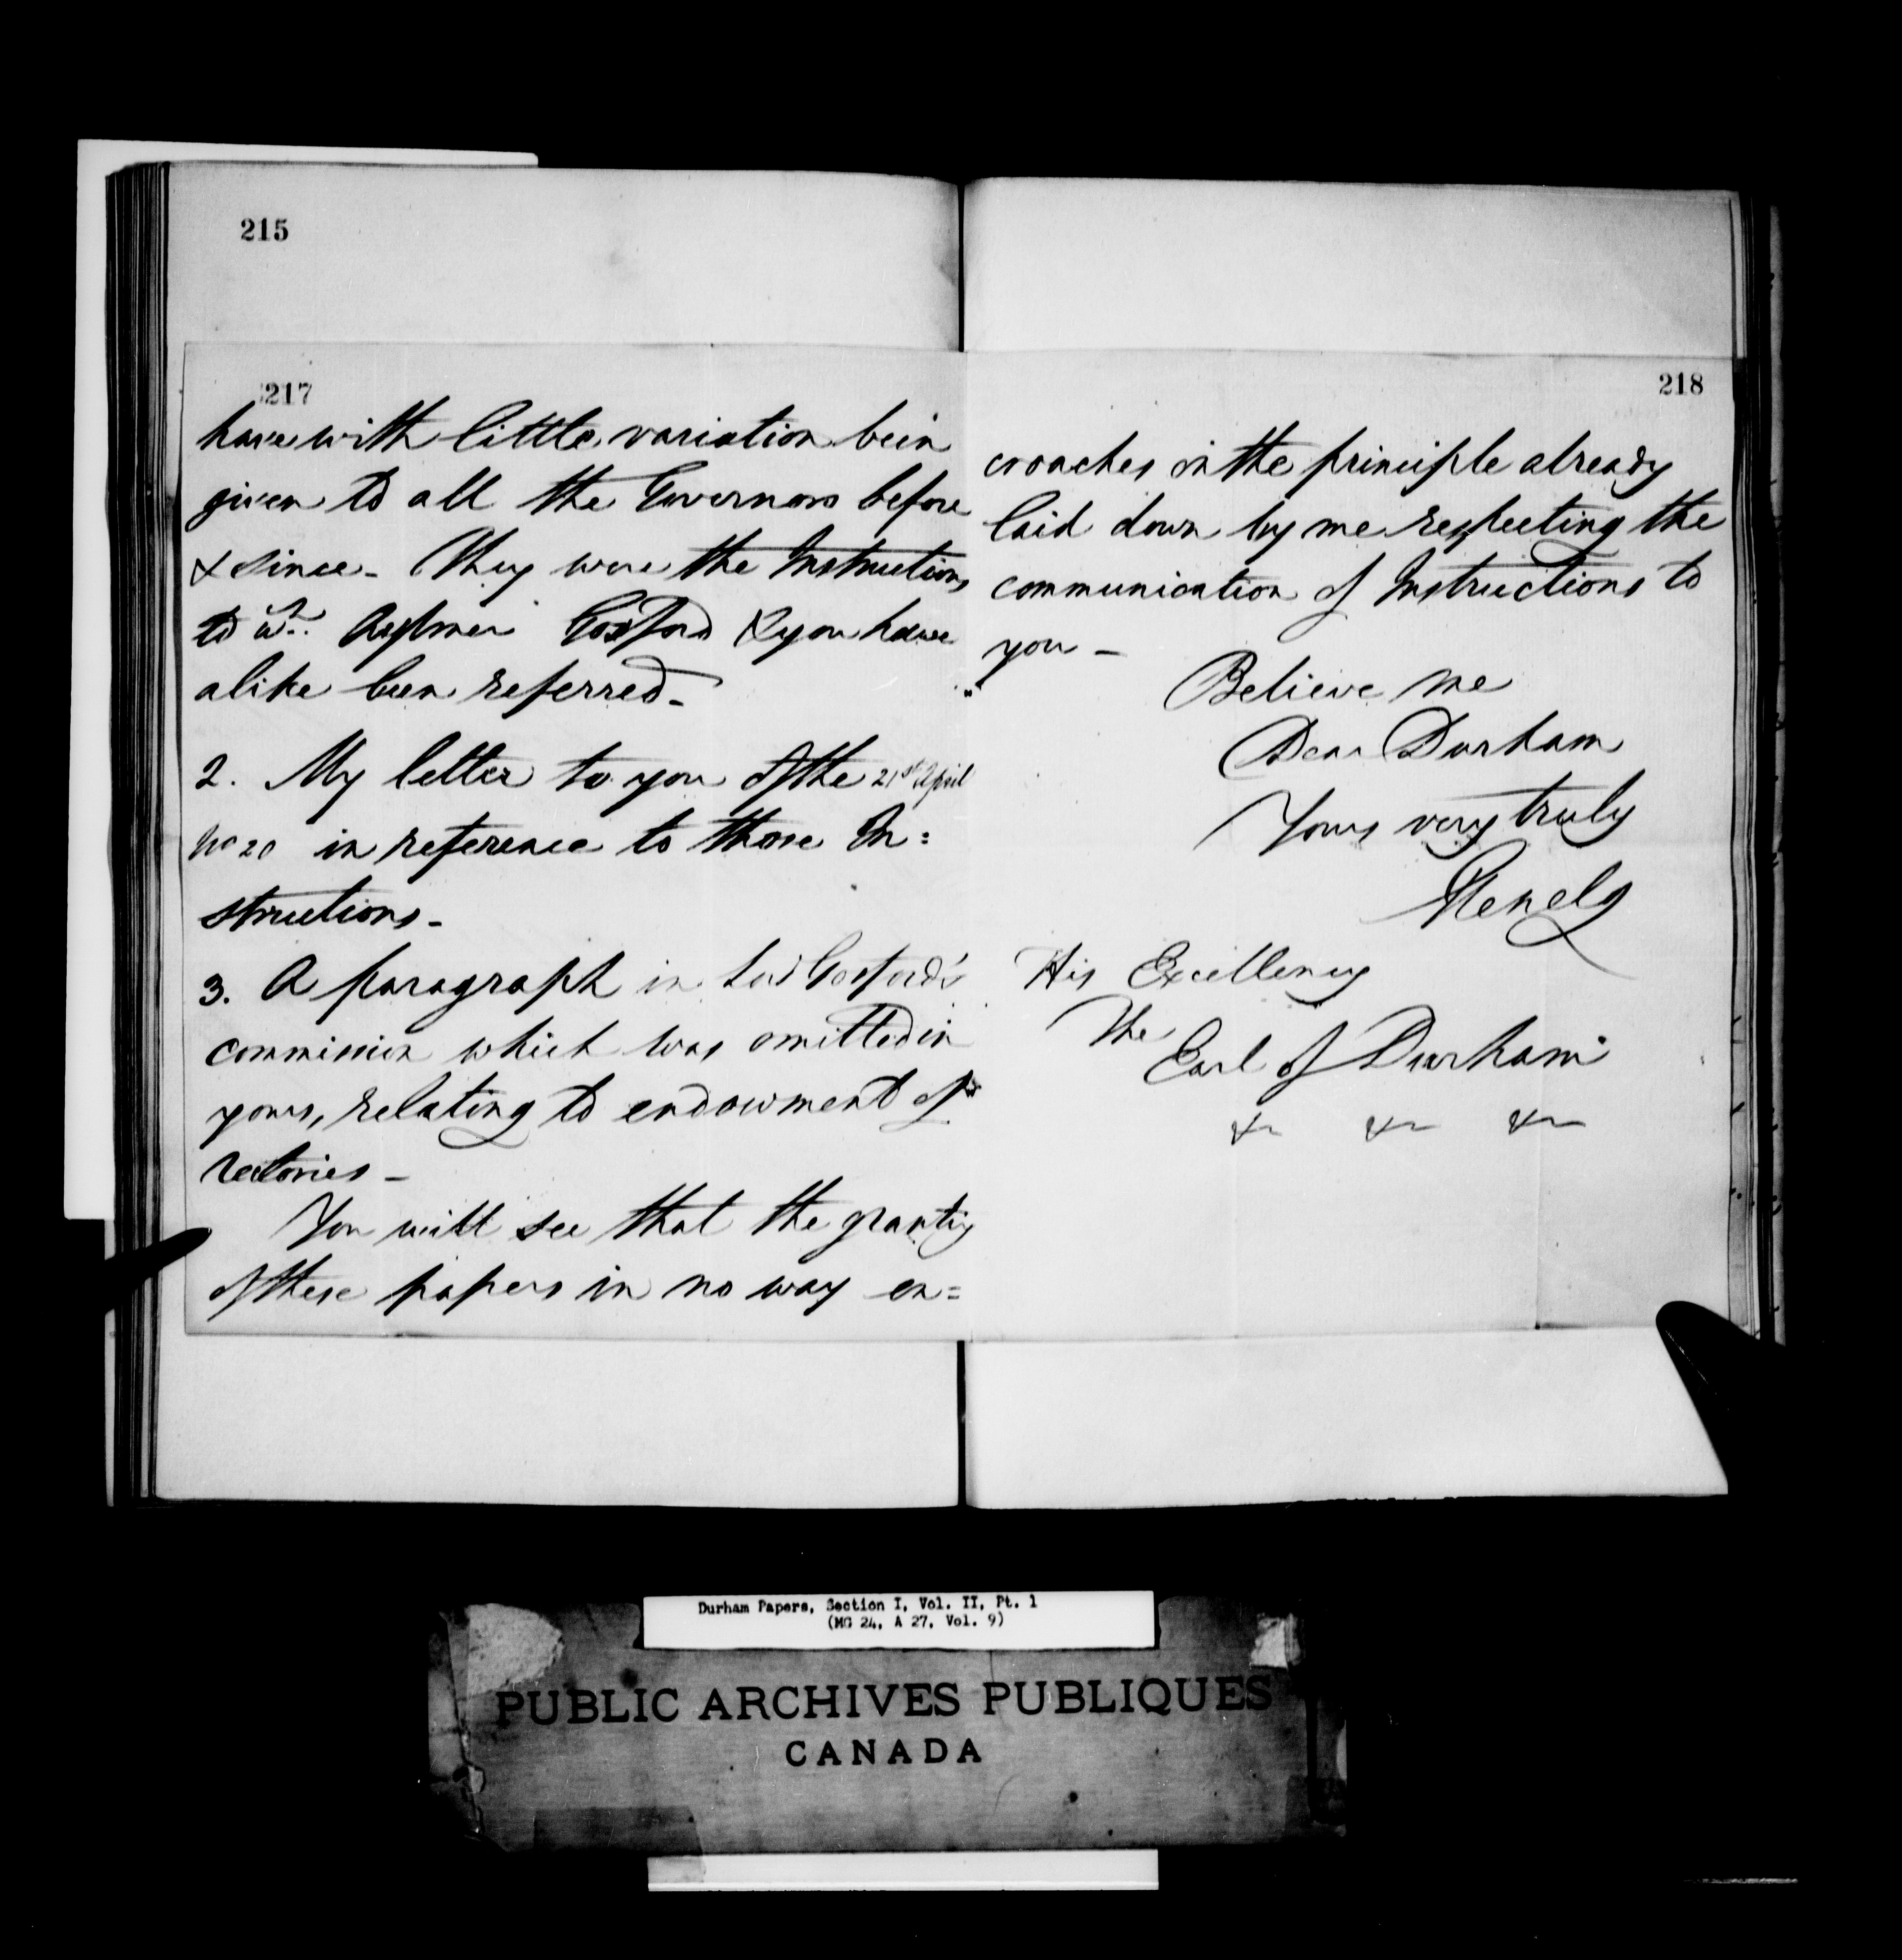 215
217
have with little variation bein
given to all the Governors before
& since - They were the Instructions
to wh. Aylmer Gosford & you have
alike been referred -
2. My letter to you of the 21st April
No 20 in reference to those In:
structions -
3. A paragraph in Lord Gosford's
commission which was omitted in
yours, relating to endowment of
rectories -
You will see that the granting
of these papers in no way en=
218
croaches on the principle already
laid down by me respecting the
communication of Instructions to
you -
Believe me
Dear Durham
Yours very truly
Glenelg
His Excellency
The
Earl of Durham
&c &c &c
Durham Papers, Section I, Vol. II, Pt. 1
(MG 24, A 27, Vol. 9)
PUBLIC ARCHIVES PUBLIQUES
CANADA